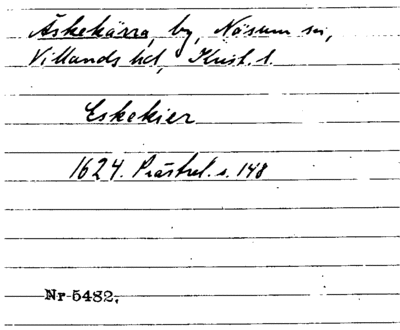 Äskekärra, by, Näsum sn,
Villands hd, Krist. l.
Eskekier
1624. Prästrel. s. 148
Nr 5482.